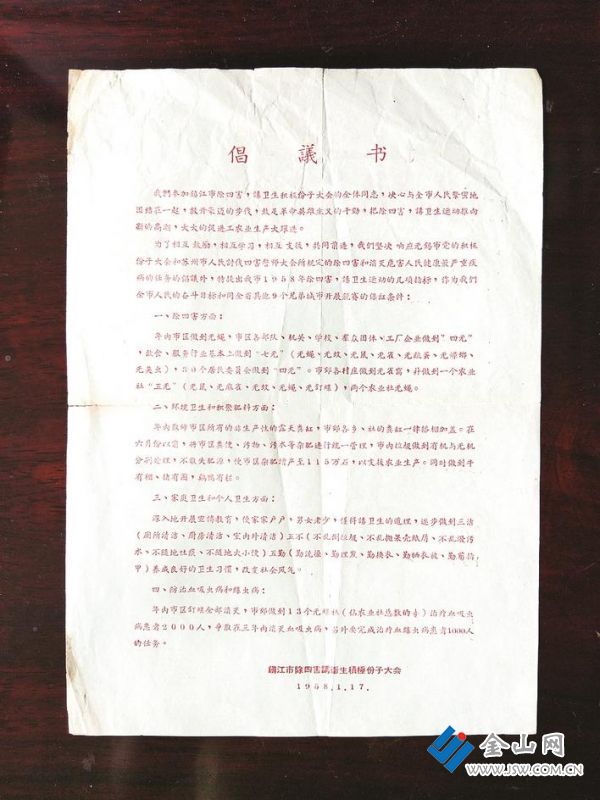 倡議书
我們参加鎮江市除四害,講卫生积极份子大会的全体同志,决心与全市人民紧密地
团結在一起,放开豪迈的步伐,鼓足革命英雄主义的干勁,把除四害,講卫生运动推向
新的高潮,大大的促进工农业生产大躍进。
为了相互鼓励,相互学习,相互支援,共同前进,我們坚决响应无錫市党的积极
份子大会和苏州市人民討伐四害誓师大会所规定的除四害和消灭危害人民健康最严重疾
病的任务的倡議外,特提出我市1958年除四害,講卫生运动的几项指标,作为我們
全市人民的奋斗目标和同全省其他9个兄弟城市开展竞赛的保証条件:
一、除四害方面:
年内市区做到无蝇,市区各部队、机关、学校、羣众团体、工厂企业做到"四无",
飲食、服务行业基本上做到"七无"(无蝇、无蚊、无鼠、无雀、无虱蚤、无蟑螂、
无臭虫),80个居民委员会做到"四无"。市郊各村庄做到无雀窩,幷做到一个农业
社"五无"(无鼠、无麻雀、无蚊、无蝇、无釘螺),两个农业社无蝇。
二、环境卫生和积聚肥料方面:
年内取締市区所有的非生产性的露天粪缸,市郊各乡、社的粪缸一律搭棚加盖。在
六月份以前,将市区粪便、污物、污水等杂肥进行統一管理,市内垃圾做到有机与无机
分别处理,不散失肥源,使市区杂肥增产至115万石,以支援农业生产。同时做到牛
有棚、猪有圈,鷄鴨有栏。
三、家庭卫生和个人卫生方面:
深入地开展宣傳教育,使家家户户,男女老少,懂得講卫生的道理,逐步做到三洁
(厕所清洁、厨房清洁、室内外清洁)五不(不乱倒垃圾、不乱抛果壳紙屑、不乱潑污
水、不随地吐痰、不随地大小便)五勤(勤洗澡、勤理发、勤换衣、勤晒衣被、勤剪指
甲)养成良好的卫生习惯,改变社会风气。
四、防治血吸虫病和絲虫病:
年内市区釘螺全部消灭,市郊做到13个无螺社(佔农业社总数的)治疗血吸虫
病患者2000人,爭取在三年内消灭血吸虫病。另外要完成治疗血絲虫病患者1000人
的任务。
鎮江市除四害講衛生積極份子大会
1958.1.17.
金山网
WWW.JSW.COM.CN